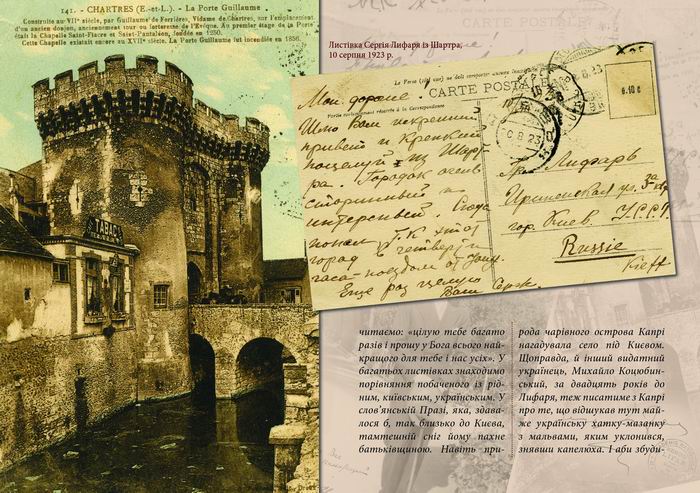 141. - CHARTRES (E.-et-L.). - La Porte Guillaume
Construite au VIIᵉ siècle, par Guillaume de Ferrières, Vidame de Chartres, sur l'emplacement
d'un ancien donjon, anciennement tour ou forteresse de l'Évêque. Au premier étage de la Porte
était la Chapelle Saint-Fiacre et Saint-Pantaléon, fondée en 1250.
Cette Chapelle existait encore au XVIIᵉ siècle. La Porte Guillaume fut incendiée en 1856.
TABAC
Листівка Сергія Лифаря із Шартра,
10 серпня 1923 р.
CARTE POSTALE
Partie exclusivement réservée à la Correspondance
Мои дорогие
Шлю Вам искренний
привет и крепкий
поцелуй из Шарт
ра. Городок очень
старинный и
интересный.
город в четверти
часа поездом от
Еще раз целую
Ваш Серж.
8 23
6.10 с
Лифарь
Ирининская ул.
гор. Киев. У.С.С.Р.
Russie
Kieff
читаємо: «цілую тебе багато
разів і прошу у Бога всього най-
кращого для тебе і нас усіх». У
багатьох листівках знаходимо
порівняння побаченого із рід-
ним, київським, українським. У
слов'янській Празі, яка, здава-
лося б, так близько до Києва,
тамтешній сніг йому пахне
батьківщиною. Навіть при-
рода чарівного острова Капрі
нагадувала село під Києвом.
Щоправда, й інший видатний
українець, Михайло Коцюбин-
ський, за двадцять років до
Лифаря, теж писатиме з Капрі
про те, що відшукав тут май-
же українську хатку-мазанку
з мальвами, яким уклонився,
знявши капелюха. І аби збуди-